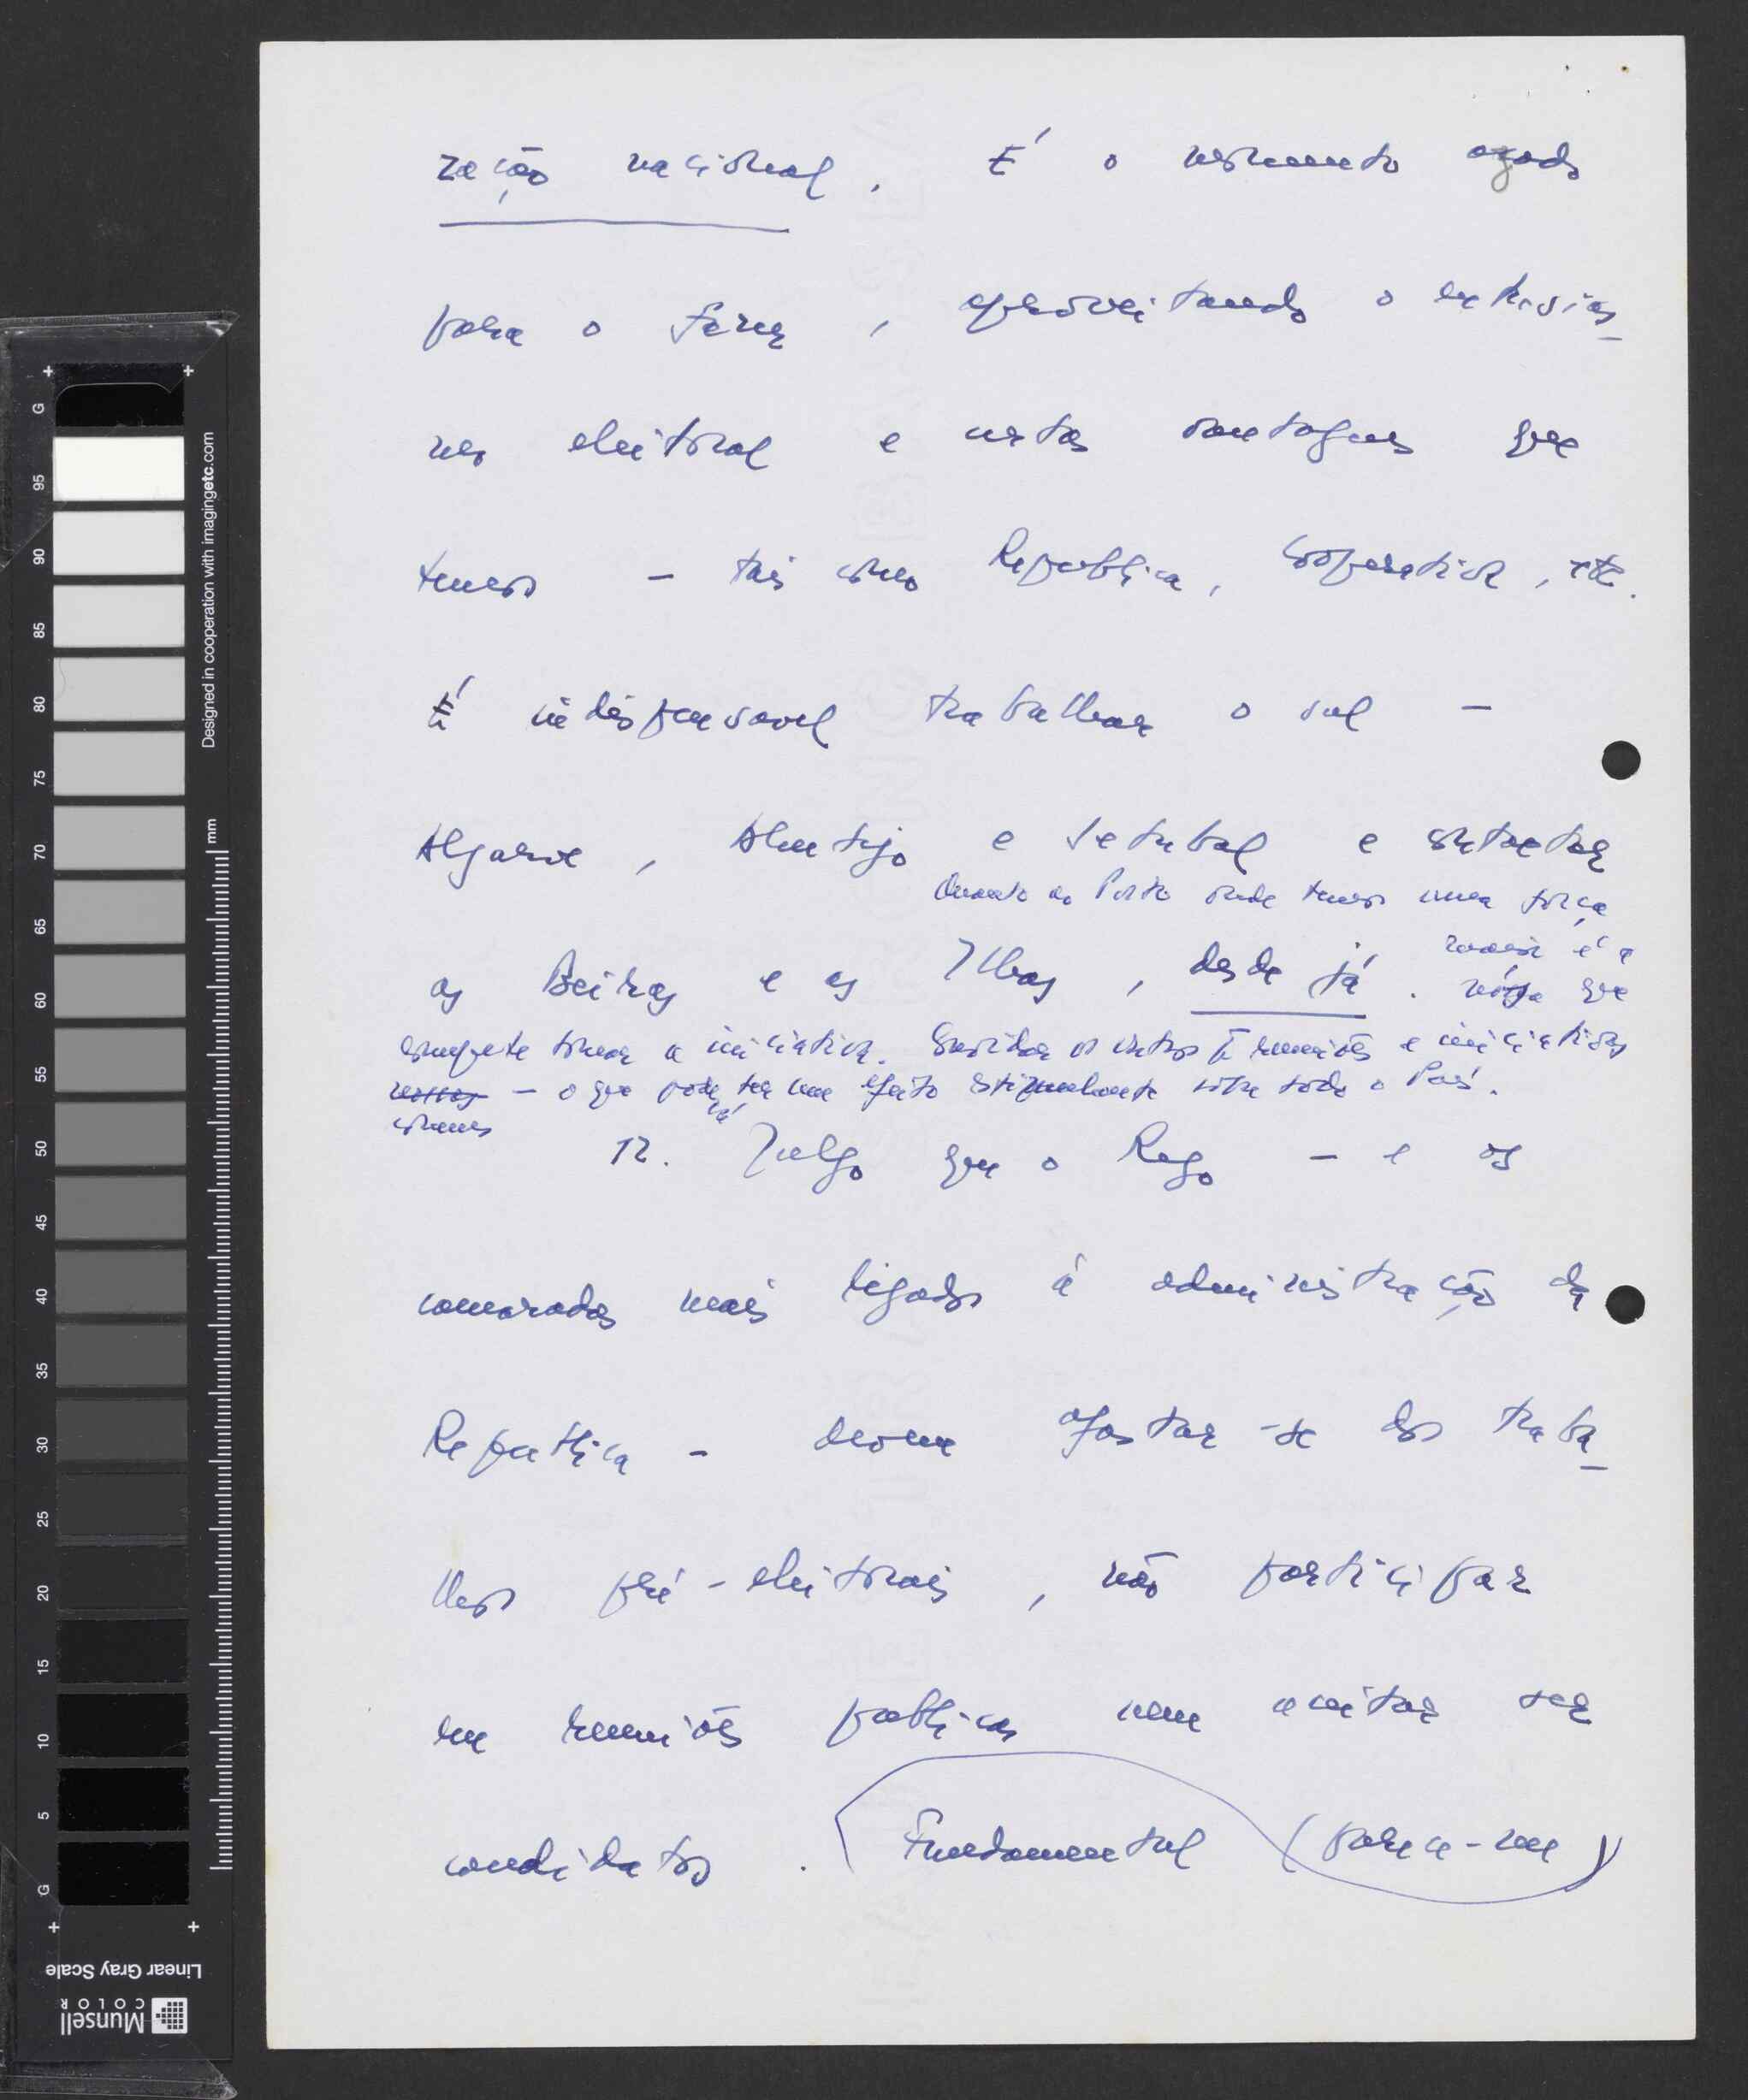 zação nacional. É o momento azado
para o fazer, aproveitando o entusias-
mo eleitoral e certas vantagens que
temos – tais como República, Cooperativa, etc.
É indispensavel trabalhar o sul –
Algarve, Alentejo e Setubal e contactar
Quanto ao Porto onde temos uma força
as Beiras e as Ilhas, desde já.
maior é a
nós que
compete tomar a iniciativa. Convidar os outros p.ª reuniões e iniciativas
nossas – o que pode ter um efeito estimulante sobre todo o País.
comuns
12. Julgo que o Rego – e os
camaradas mais ligados á administração da
Republica – devem afastar-se dos traba-
lhos pré-eleitorais, não participar
em reuniões publicas nem aceitar ser
candidatos. Fundamental (parece-me)
G
95
90
85
80
75
70
65
60
55
50
45
40
35
30
25
20
15
10
5
G
mm
Designed in cooperation with imagingetc.com
Linear Gray Scale
Munsell
COLOR